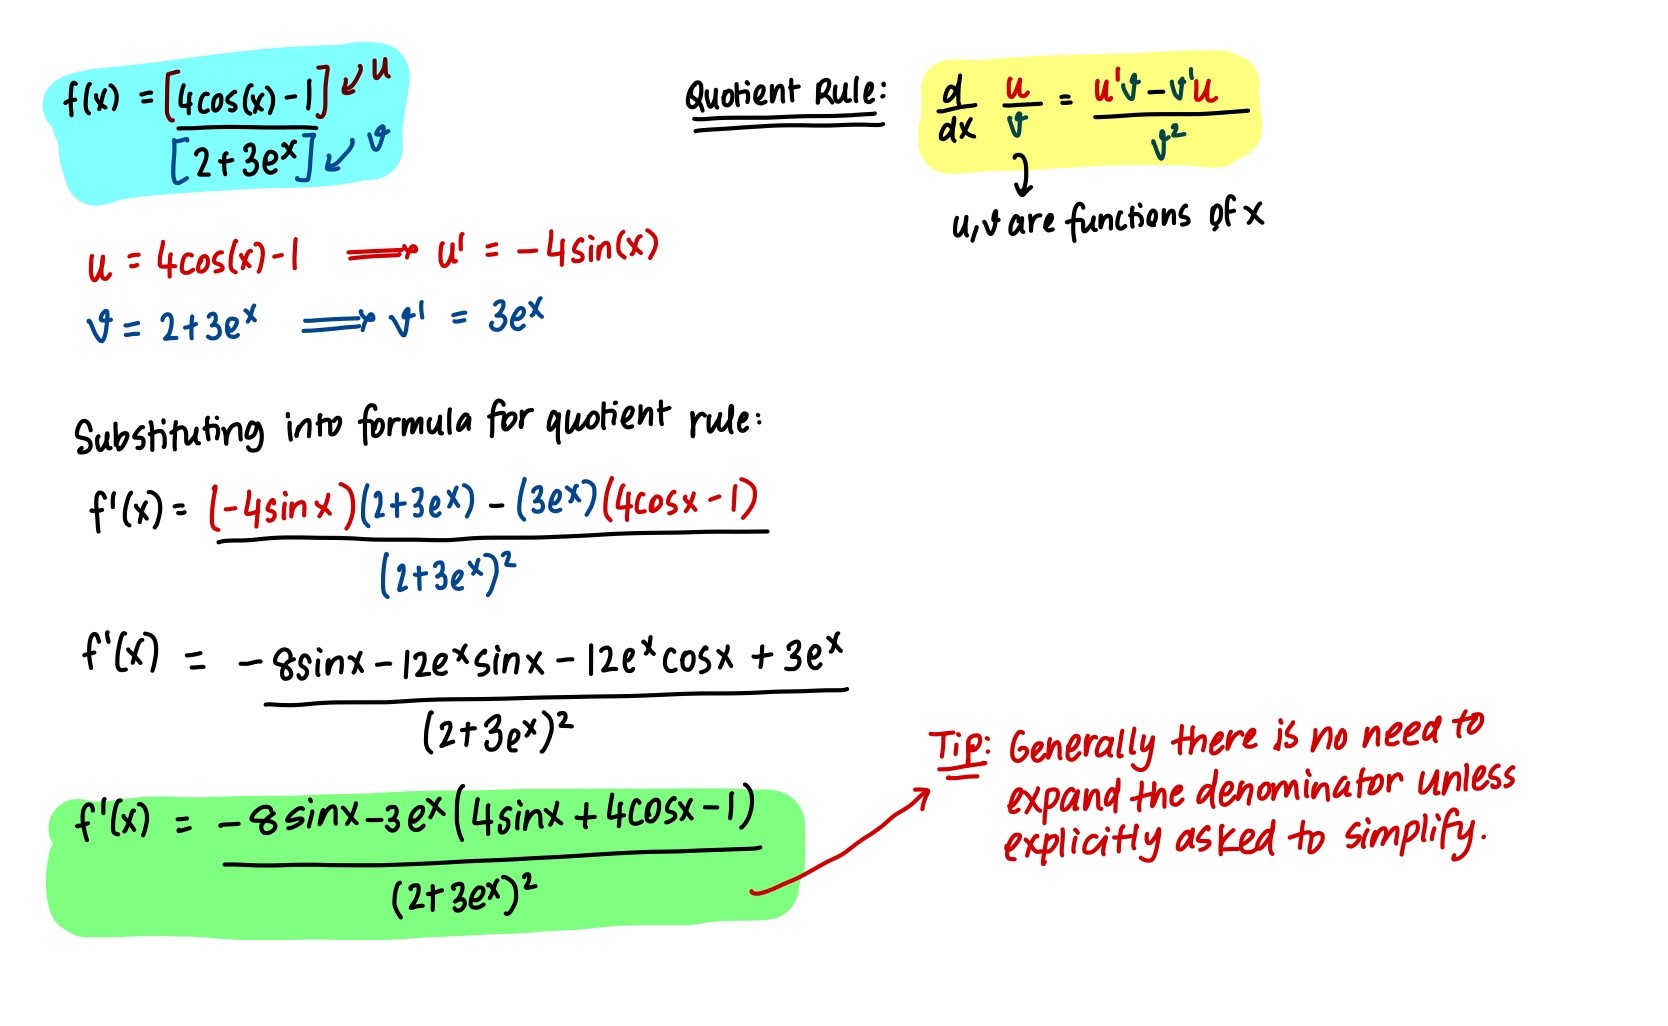 f(x) = [4cos(x) - 1] ↙ u
[2 + 3eˣ] ↙ v
Quotient Rule: d/dx u/v = u'v - v'u / v²
u, v are functions of x
u = 4cos(x) - 1 ⟹ u' = -4sin(x)
v = 2 + 3eˣ ⟹ v' = 3eˣ
Substituting into formula for quotient rule:
f'(x) = (-4sinx)(2+3eˣ) - (3eˣ)(4cosx - 1)
(2+3eˣ)²
f'(x) = -8sinx - 12eˣsinx - 12eˣcosx + 3eˣ
(2+3eˣ)²
f'(x) = -8sinx - 3eˣ(4sinx + 4cosx - 1)
(2+3eˣ)²
Tip: Generally there is no need to
expand the denominator unless
explicitly asked to simplify.